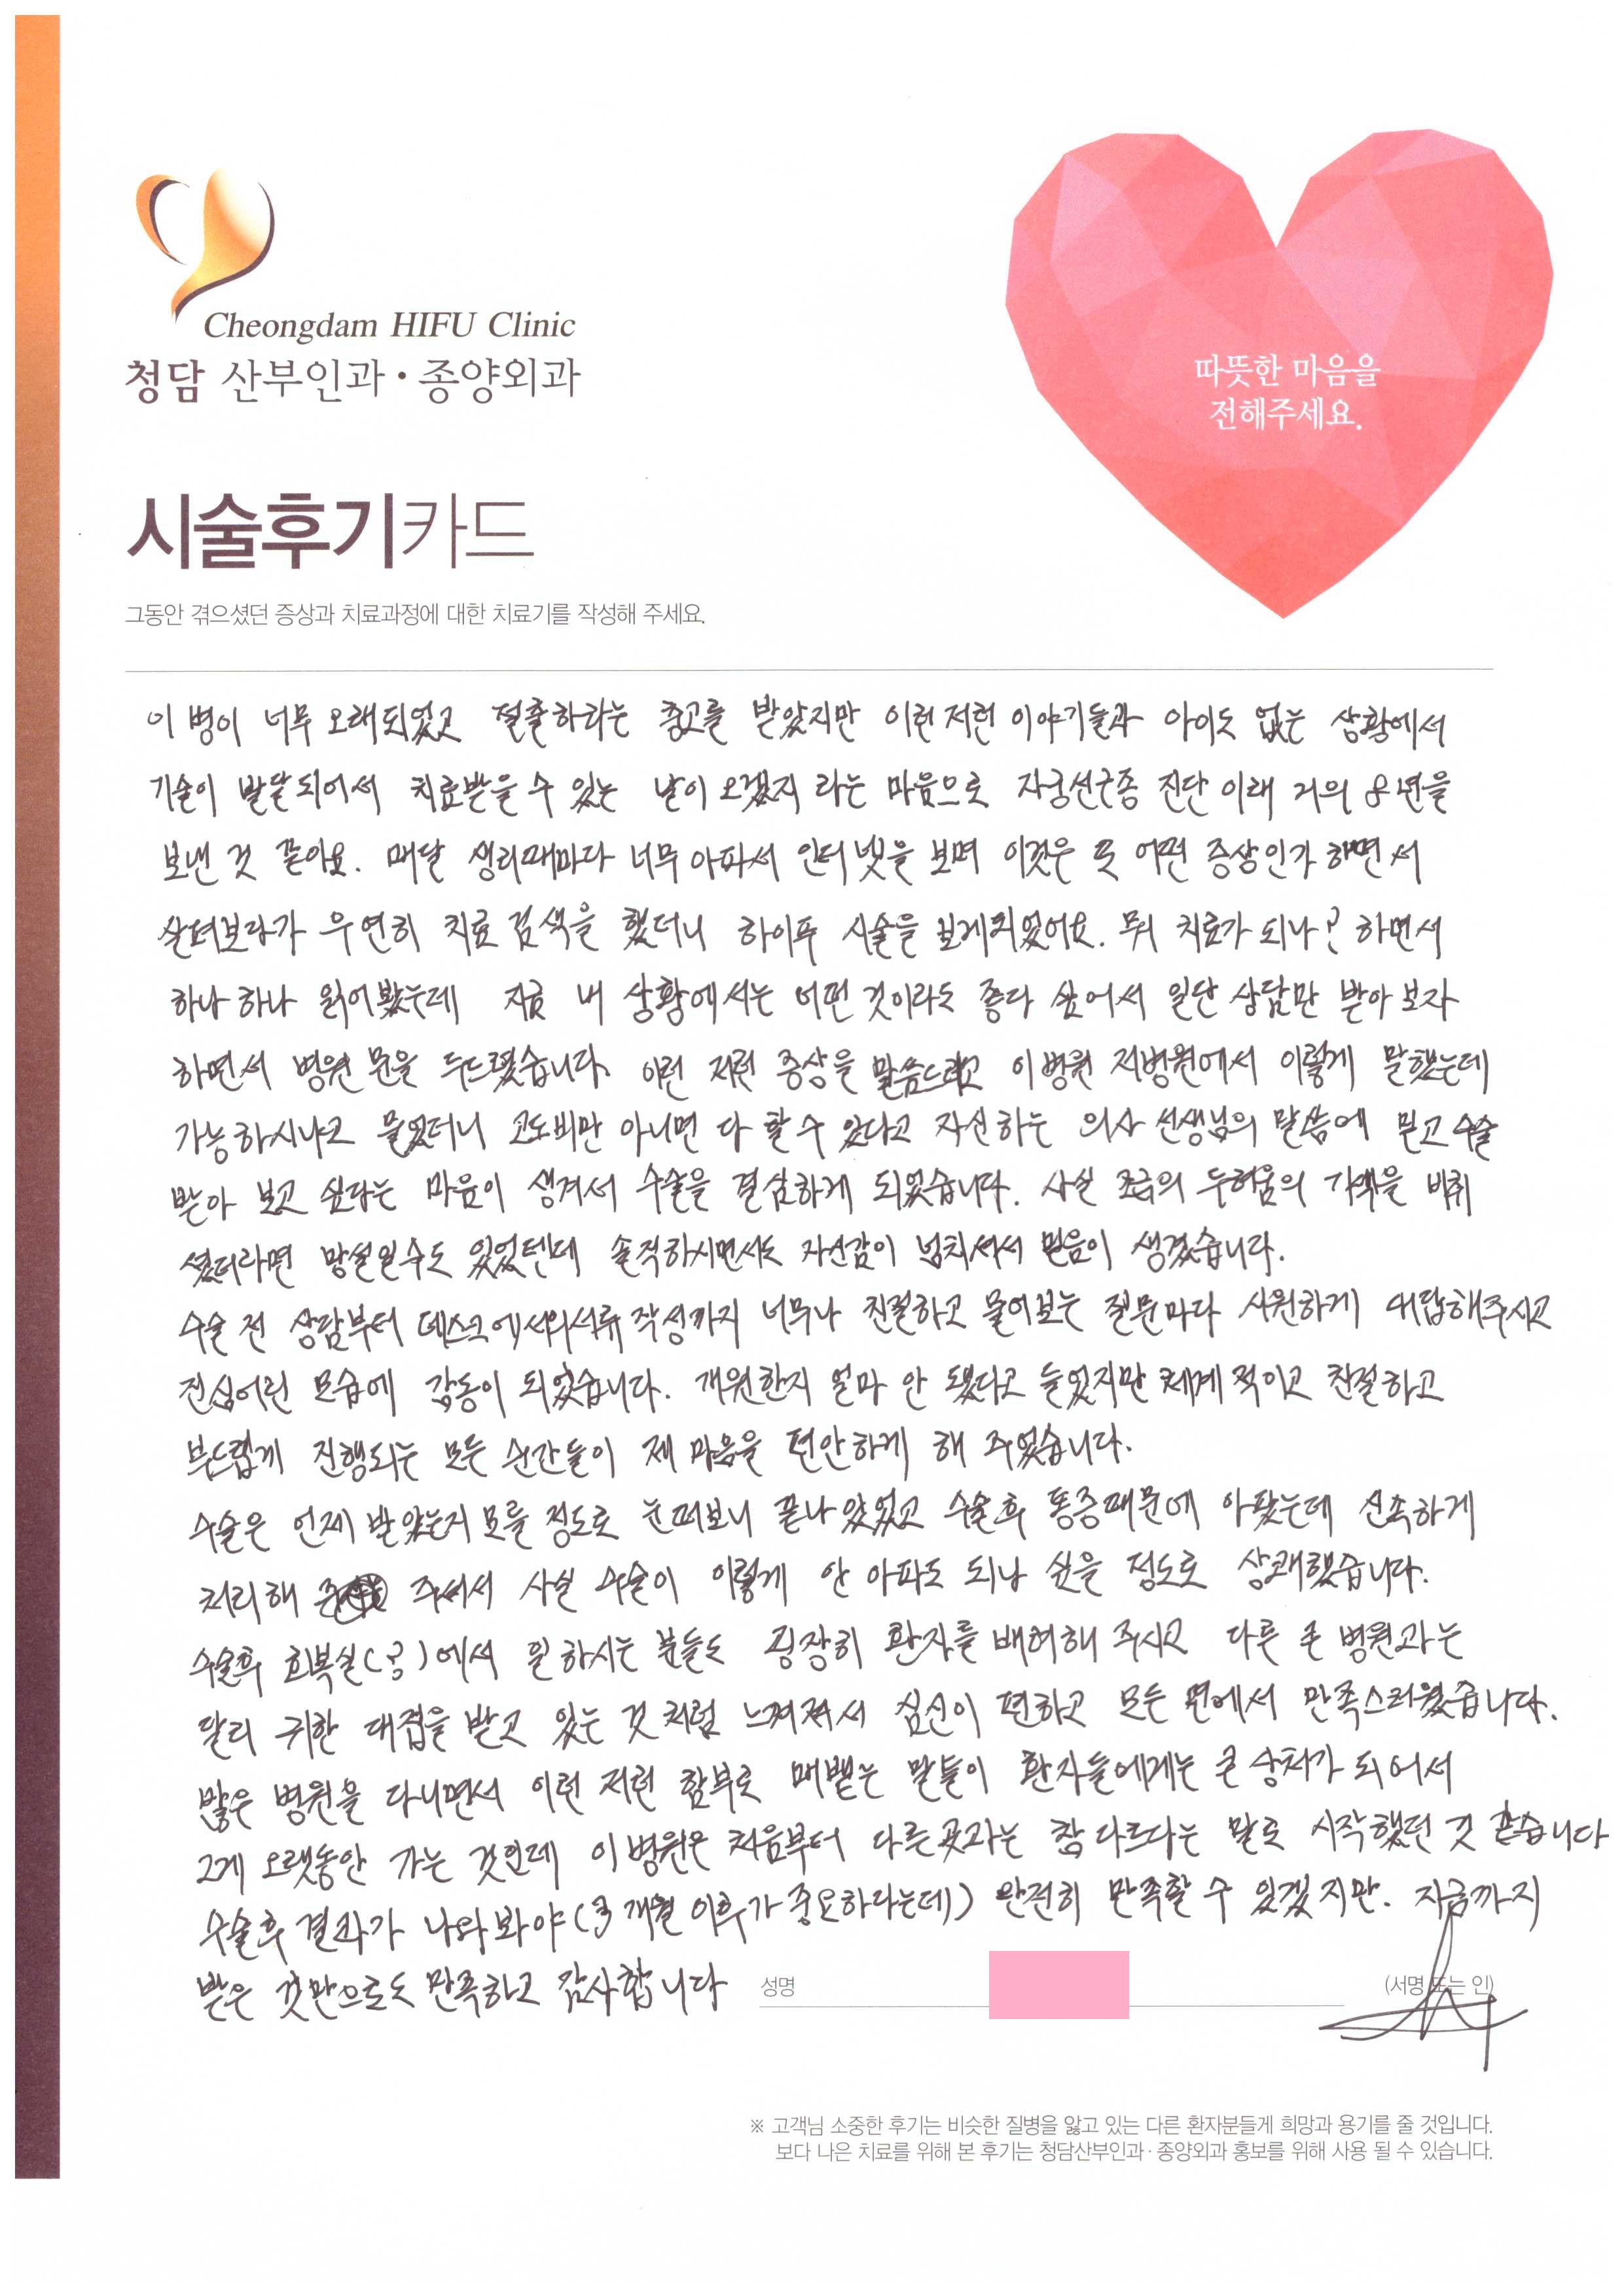 Cheongdam HIFU Clinic
청담 산부인과·종양외과
따뜻한 마음을
전해주세요.
시술후기카드
그동안 겪으셨던 증상과 치료과정에 대한 치료기를 작성해 주세요.
이 병이 너무 오래되었고 절출하라는 충고를 받았지만 이런저런 이야기들과 아이도 없는 상황에서
기술이 발달되어서 치료받을 수 있는 날이 오겠지 라는 마음으로 자궁선근종 진단 이래 거의 8년을
보낸 것 같아요. 매달 생리때마다 너무 아파서 인터넷을 보며 이것은 또 어떤 증상인가 하면서
살펴보다가 우연히 치료 검색을 했더니 하이푸 시술을 보게되었어요. 뭐 치료가 되나? 하면서
하나하나 읽어봤는데 지금 내 상황에서는 어떤 것이라도 좋다 싶어서 일단 상담만 받아보자
하면서 병원 문을 두드렸습니다. 이런 저런 증상을 말씀드리고 이병원 저병원에서 이렇게 말했는데
가능하시냐고 물었더니 고도비만 아니면 다 할 수 있다고 자신하는 의사 선생님의 말씀에 믿고 수술
받아 보고 싶다는 마음이 생겨서 수술을 결심하게 되었습니다. 사실 조금의 두려움의 기색을 비취
셨더라면 망설일수도 있었텐데 솔직하시면서도 자신감이 넘치셔서 믿음이 생겼습니다.
수술 전 상담부터 데스크에서의서류 작성까지 너무나 친절하고 물어보는 질문마다 시원하게 대답해주시고
진심어린 모습에 감동이 되었습니다. 개원한지 얼마 안 됐다고 들었지만 체계적이고 친절하고
부드럽게 진행되는 모든 순간들이 제 마음을 편안하게 해 주었습니다.
수술은 언제 받았는지 모를 정도로 눈떠보니 끝나 있었고 수술후 통증때문에 아팠는데 신속하게
처리해 주셔서 사실 수술이 이렇게 안 아파도 되나 싶을 정도로 상쾌했습니다.
수술후 회복실(?)에서 일하시는 분들도 굉장히 환자를 배려해 주시고 다른 큰 병원과는
달리 귀한 대접을 받고 있는 것처럼 느껴져서 심신이 편하고 모든 면에서 만족스러웠습니다.
많은 병원을 다니면서 이런 저런 함부로 내뱉는 말들이 환자들에게는 큰 상처가 되어서
그게 오랫동안 가는 것인데 이 병원은 처음부터 다른곳과는 참 다르다는 말로 시작했던 것 같습니다
수술후 결과가 나와봐야(3개월 이후가 중요하다는데) 완전히 만족할 수 있겠지만. 지금까지
받은 것만으로도 만족하고 감사합니다
성명
(서명 또는 인)
※ 고객님 소중한 후기는 비슷한 질병을 앓고 있는 다른 환자분들게 희망과 용기를 줄 것입니다.
보다 나은 치료를 위해 본 후기는 청담산부인과·종양외과 홍보를 위해 사용 될 수 있습니다.